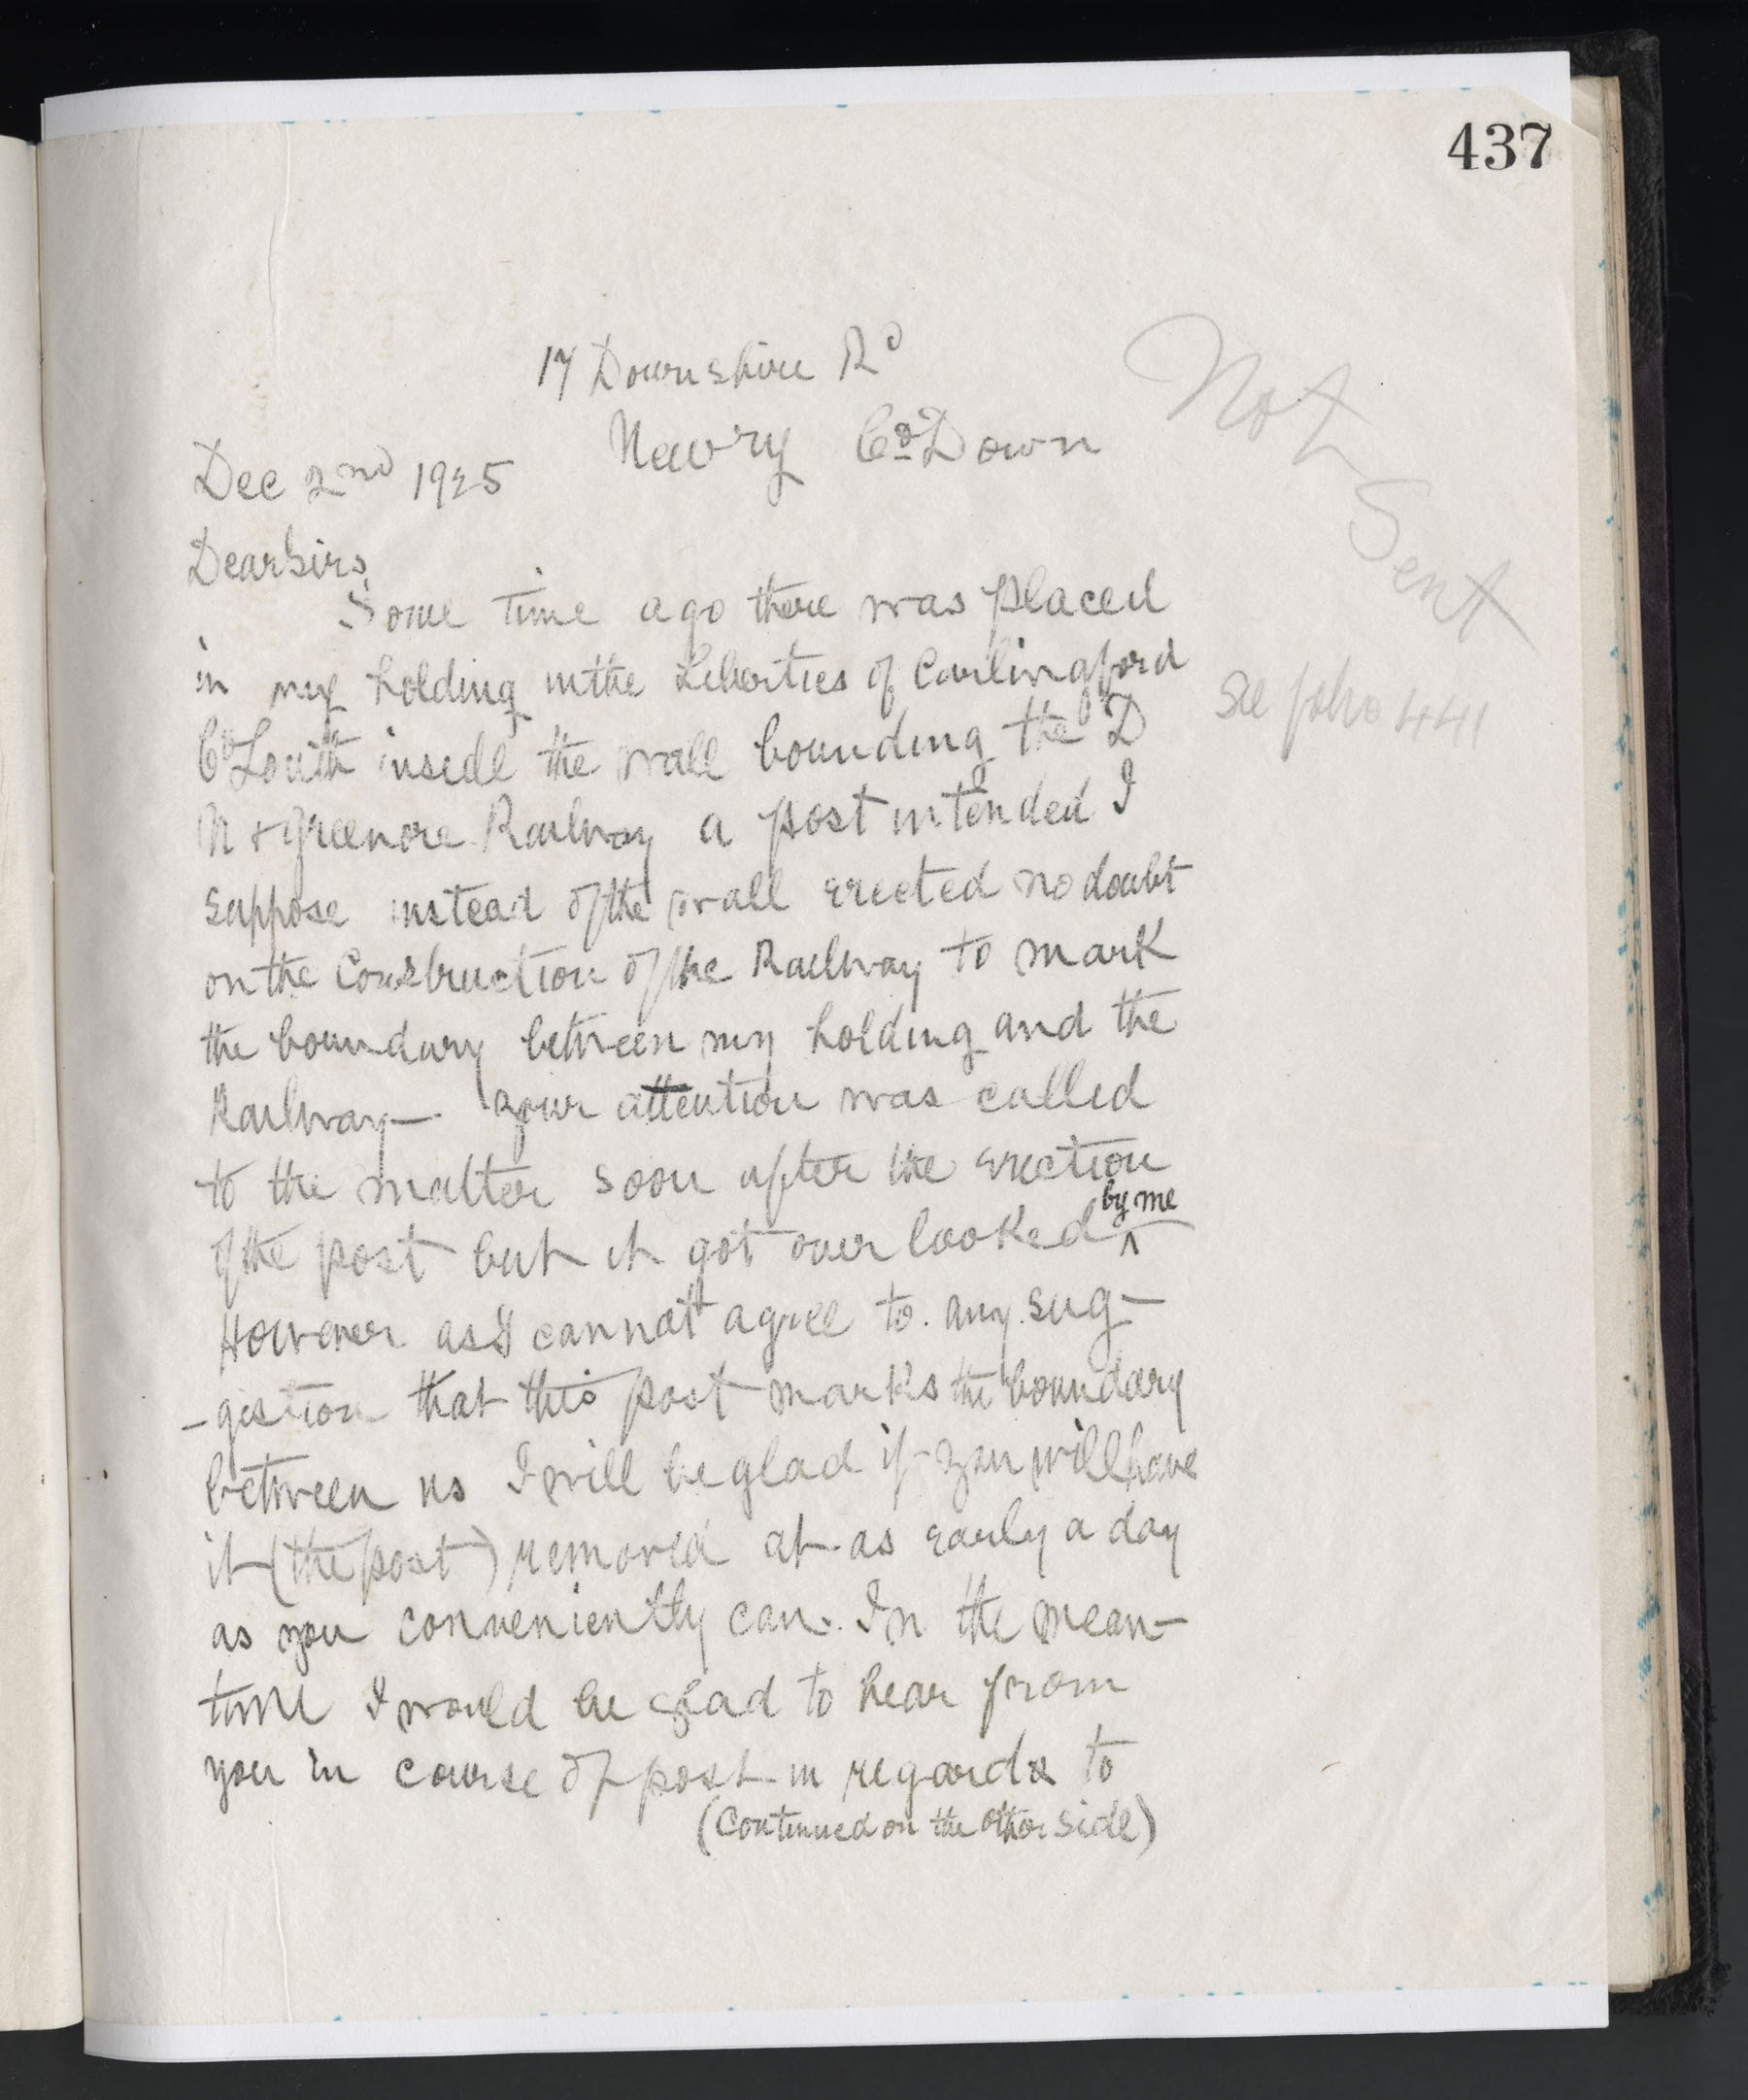 437
17 Downshire Rd
Newry Co Down
Not
Sent
Dec 2nd 1925
Dear Sirs
Some time ago there was placed
in my holding in the Liberties of Carlingford
See folio 441
Co Louth inside the wall bounding the D
N & Greenore Railway a post intended I
suppose instead of the wall erected no doubt
on the Construction of the Railway to mark
the boundary between my holding and the
Railway — your attention was called
to the matter soon after the erection
of the post but it got over looked by me
However as I cannot agree to any sug-
-gestion that this post marks the boundary
between us I will be glad if you will have
it (the post) removed at as early a day
as you conveniently can. In the mean-
time I would be glad to hear from
you in course of post in regards to
(Continued on the other side)